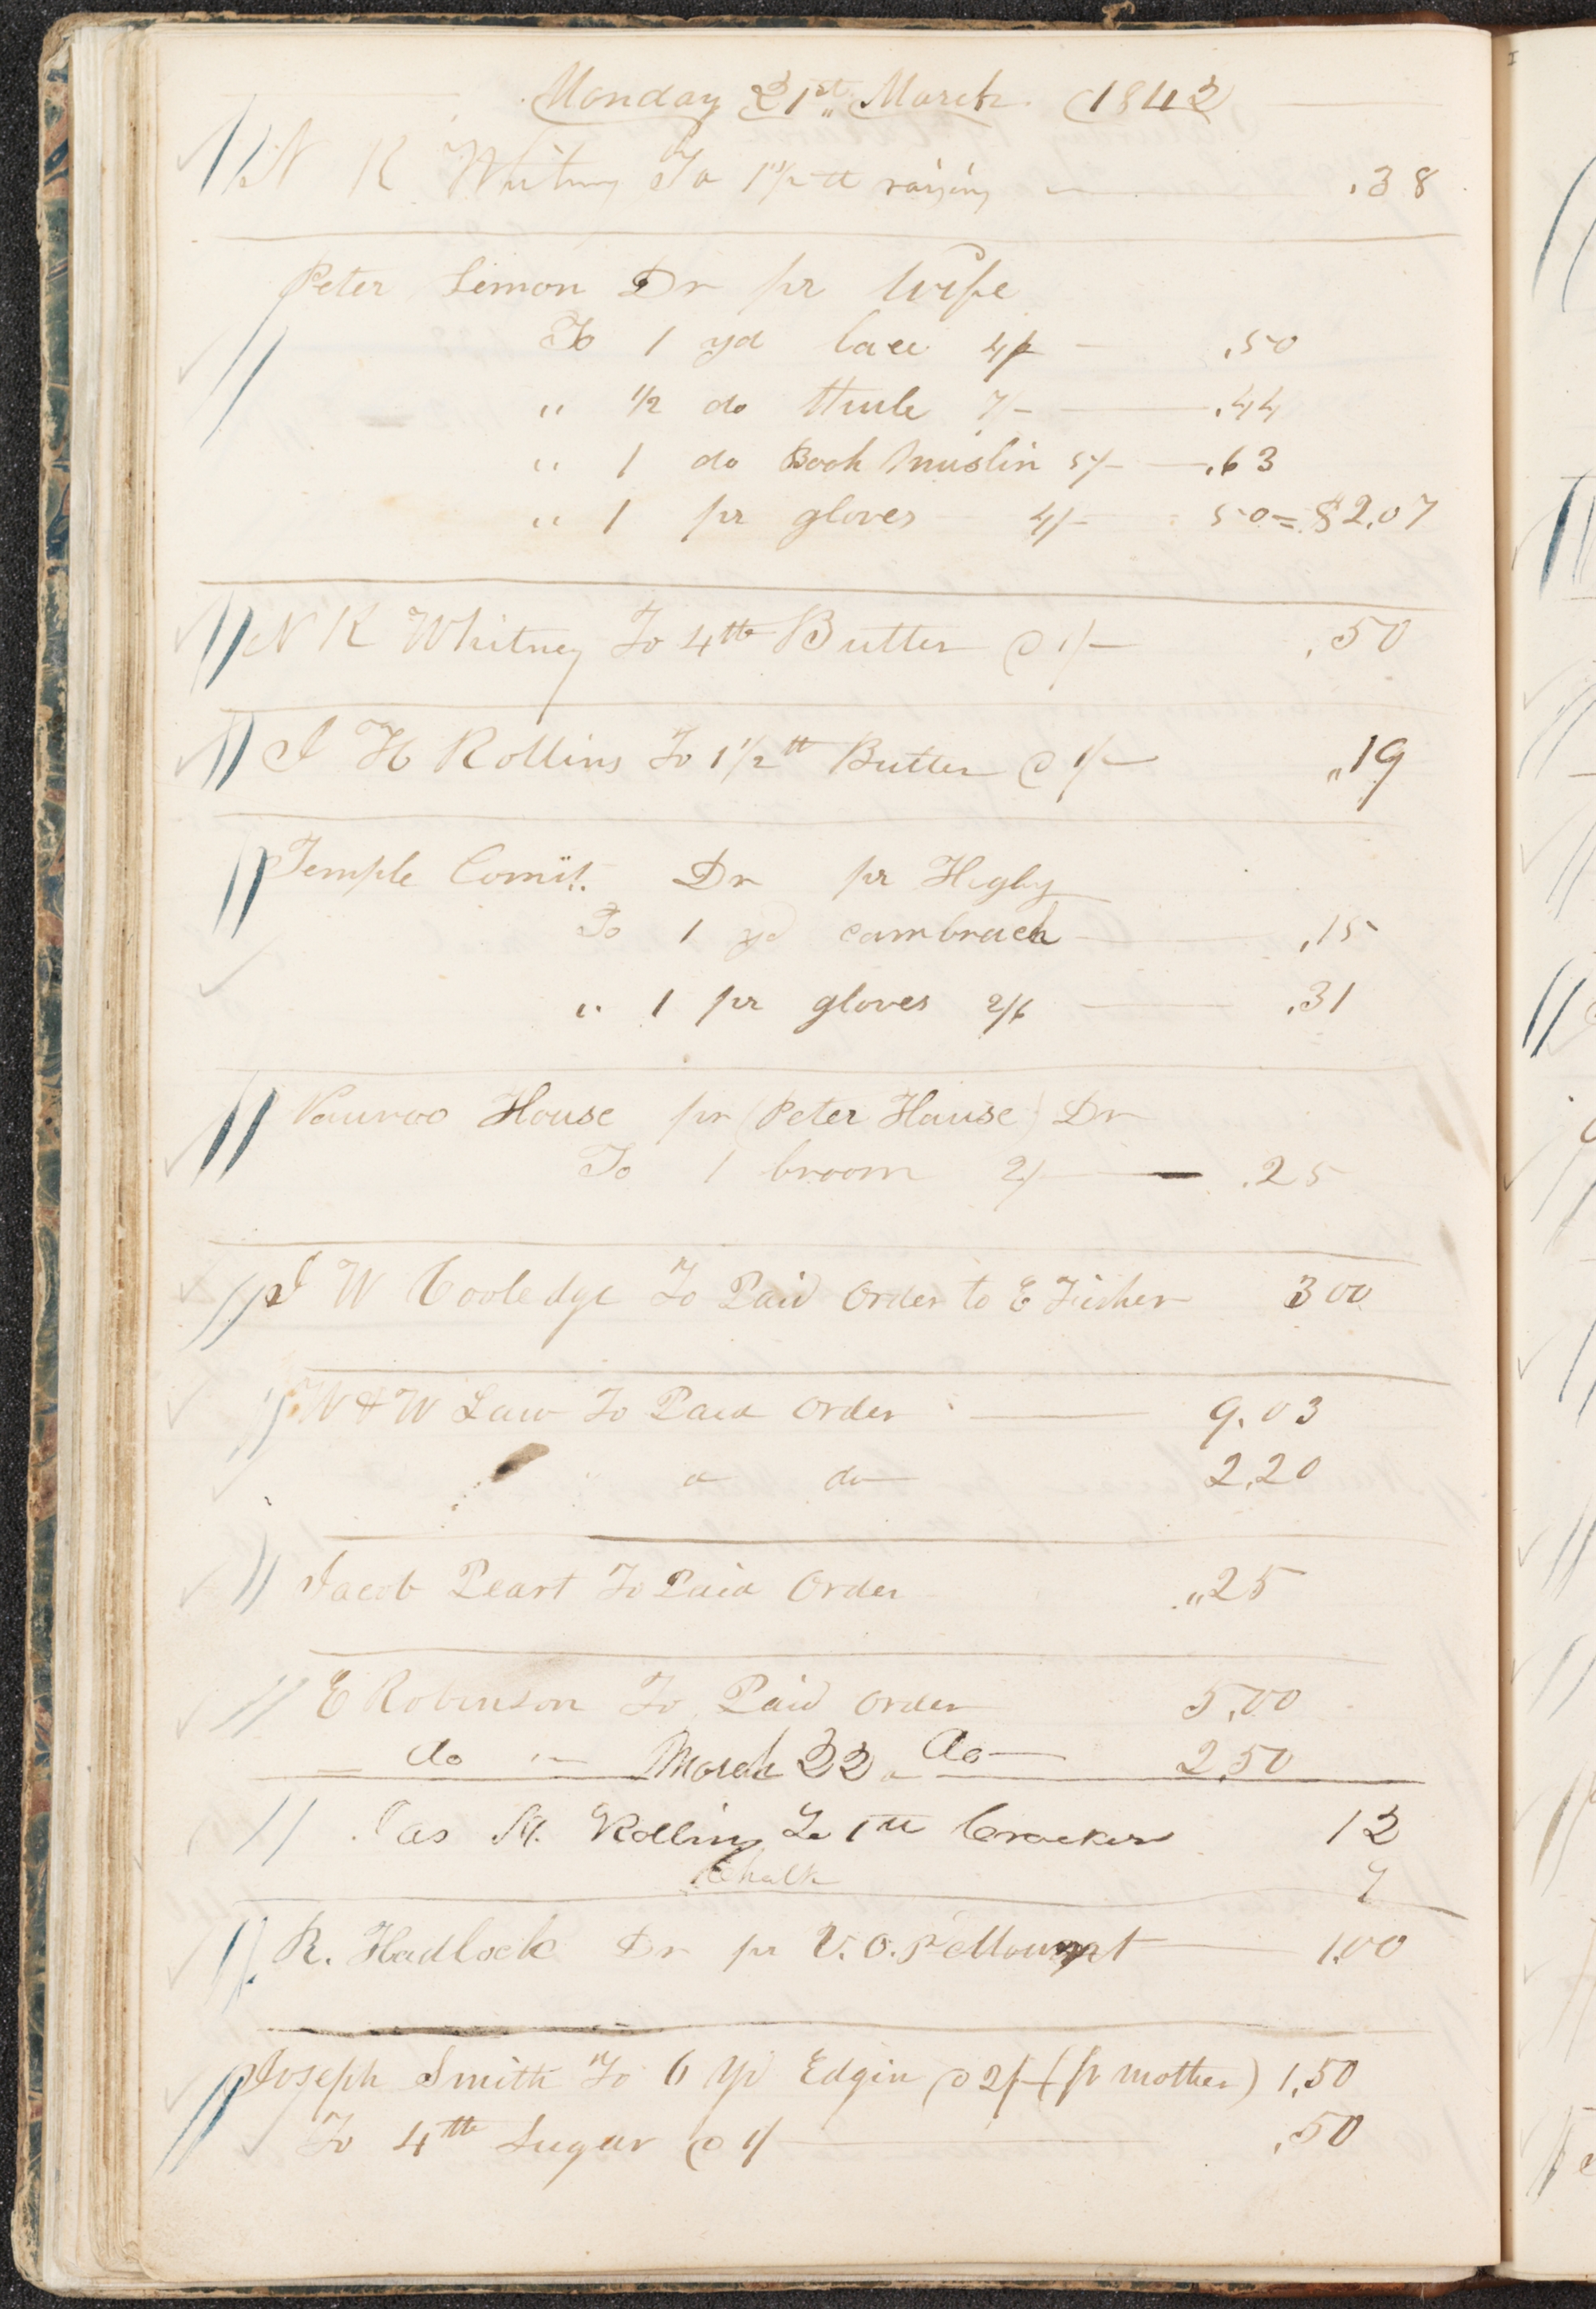 Monday 21st March 1842
N K Whitney To 1 1/2 tt raising .38
Peter Limon Dr pr Wife
To 1 yd lace 4/- .50
" 1/2 do 7/- .44
" 1 do Book Muslin 5/- .63
" 1 pr gloves 4/- 50 = $2.07
N K Whitney To 4 tt Butter @ 1/- .50
J H Rollins To 1 1/2 tt Butter @ 1/- "19
Temple Comit. Dr pr Higby
To 1 yd cambrack .15
" 1 pr gloves 2/6 .31
Nauvoo House pr (Peter Hause) Dr
To 1 broom 2/- .25
J W Cooledge To Paid Order to E Fisher 3 00
W & W Law To Paid Order 9.03
" do 2.20
Jacob Peart To Paid Order "25
E Robinson To Paid Order 5.00
do " March 22 " do 2.50
Jas H. Rollins To 1 tt Cracker 12
Chalk 7
R. Hadlock Dr pr 1.00
Joseph Smith To 6 Yd Edgin @ 2/- (pr mother) 1.50
To 4 tt Sugar @ 1/ .50